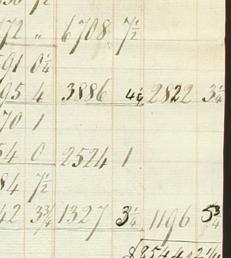 72 " 6708 7½
91 0½
95 4 3886 4¼ 2822 3¼
70 1
54 0 2524 1
84 7½
42 3¾ 1327 3¼ 1196 5¾